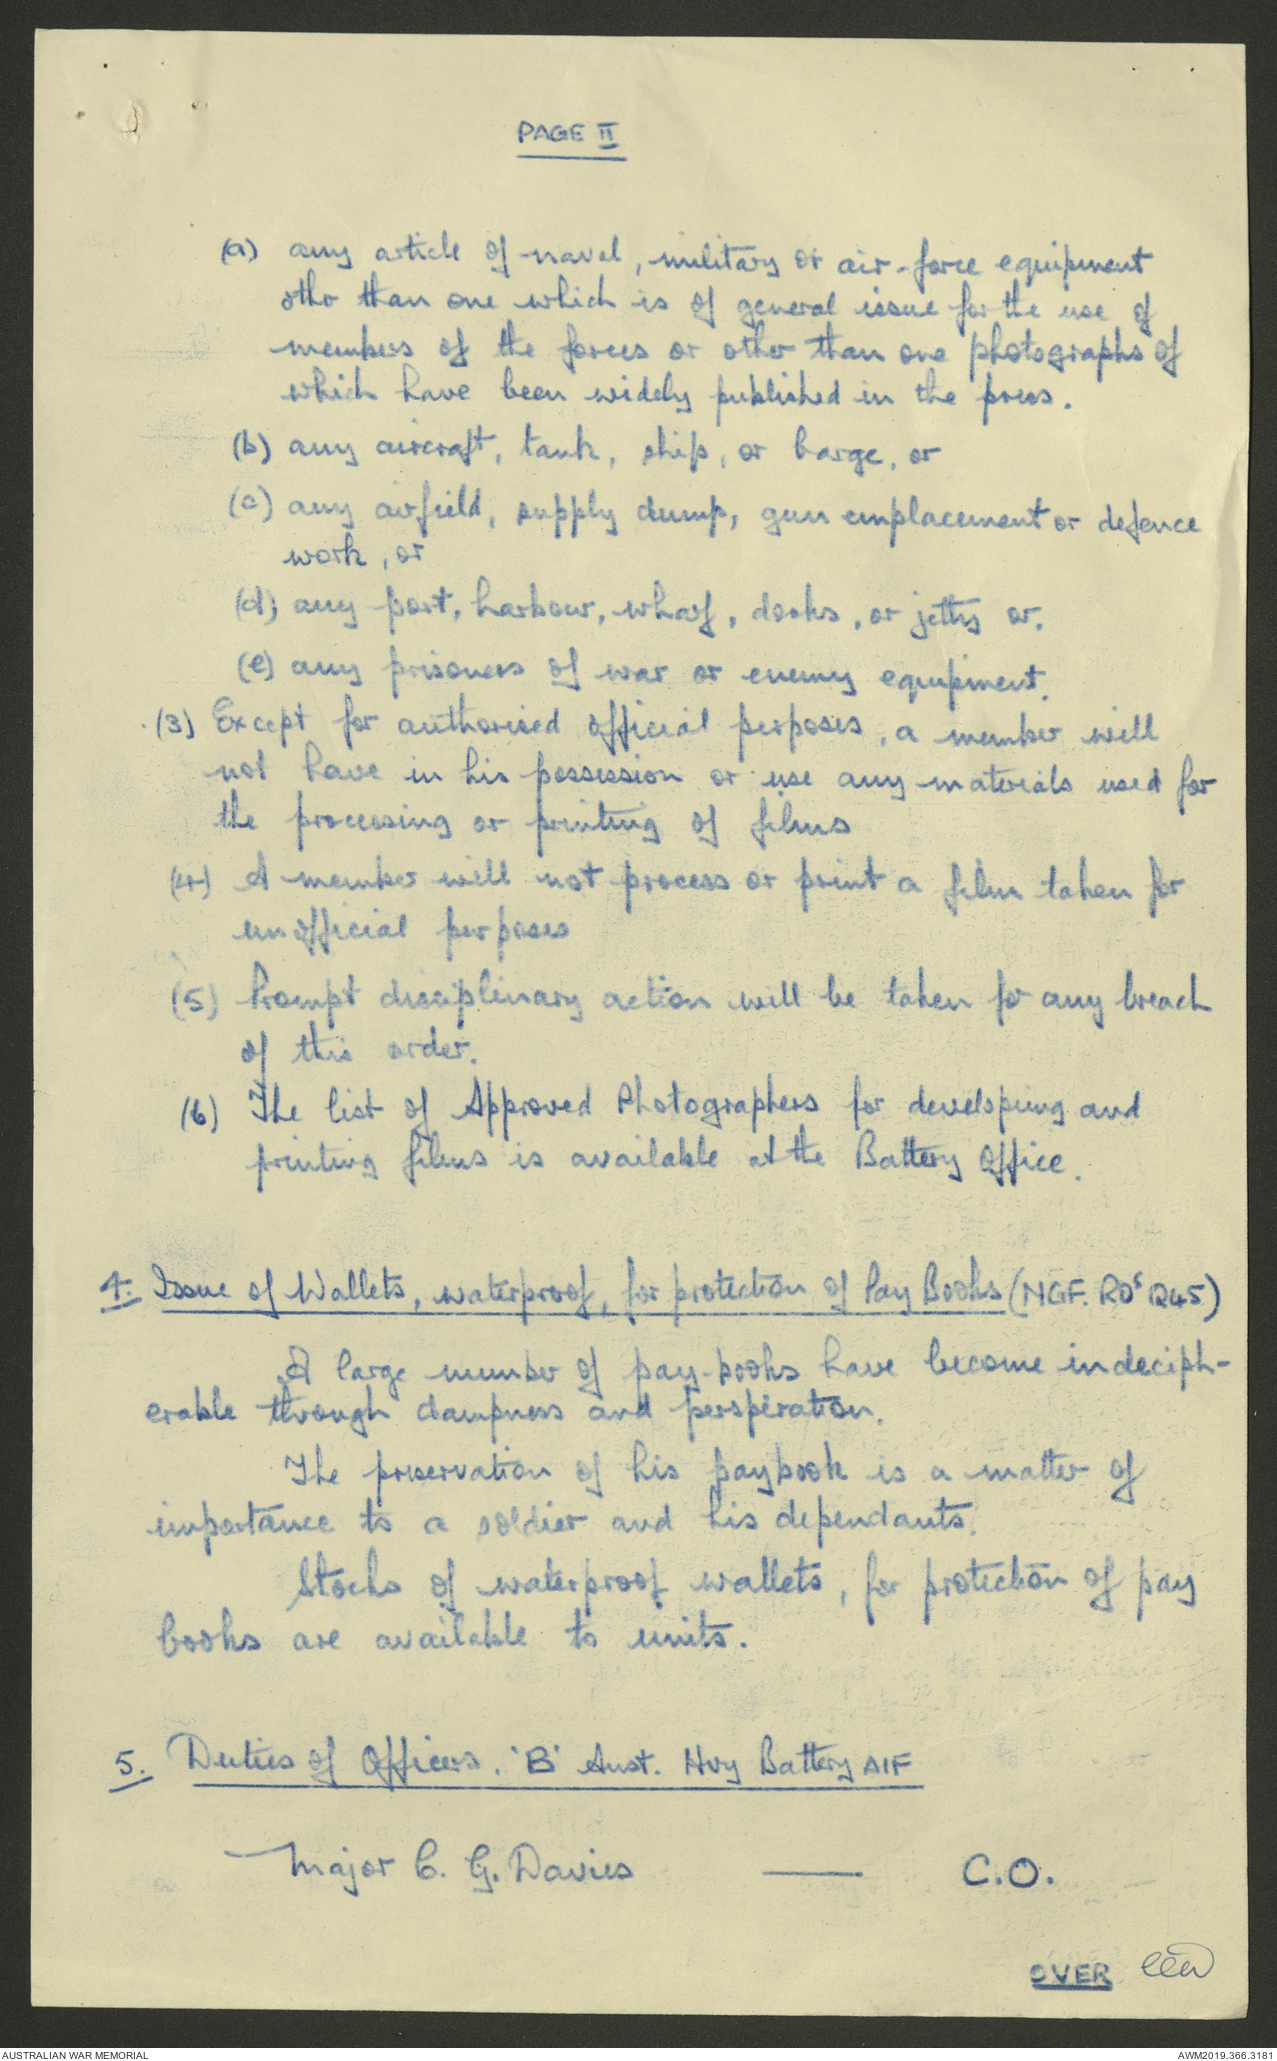 PAGE II
(a) any article of naval, military or air-force equipment
othr than one which is of general issue for the use of
members of the forces or other than one photographs of
which have been widely published in the press.
(b) any aircraft, tank, ship, or barge, or
(c) any airfield, supply dump, gun emplacement or defence
work, or
(d) any port, harbour, wharf, docks, or jetty or.
(e) any prisoners of war or enemy equipment.
(3) Except for authorised official perposes, a member will
not have in his possession or use any materials used for
the processing or printing of films
(4) A member will not process or print a film taken for
unofficial perposes
(5) Prompt disciplinary action will be taken for any breach
of this order.
(6) The list of Approved Photographers for developing and
printing films is available at the Battery Office.
4. Issue of Wallets, waterproof, for protection of Pay Books (NGF. RO's Q45)
A large number of pay-books have become indeciph-
erable through dampness and perspiration.
The preservation of his paybook is a matter of
importance to a soldier and his dependants.
Stocks of waterproof wallets, for protection of pay
books are available to units.
5. Duties of Officers. 'B' Aust. Hvy Battery AIF
Major C. G. Davies — C.O.
OVER
AUSTRALIAN WAR MEMORIAL AWM2019.366.3181